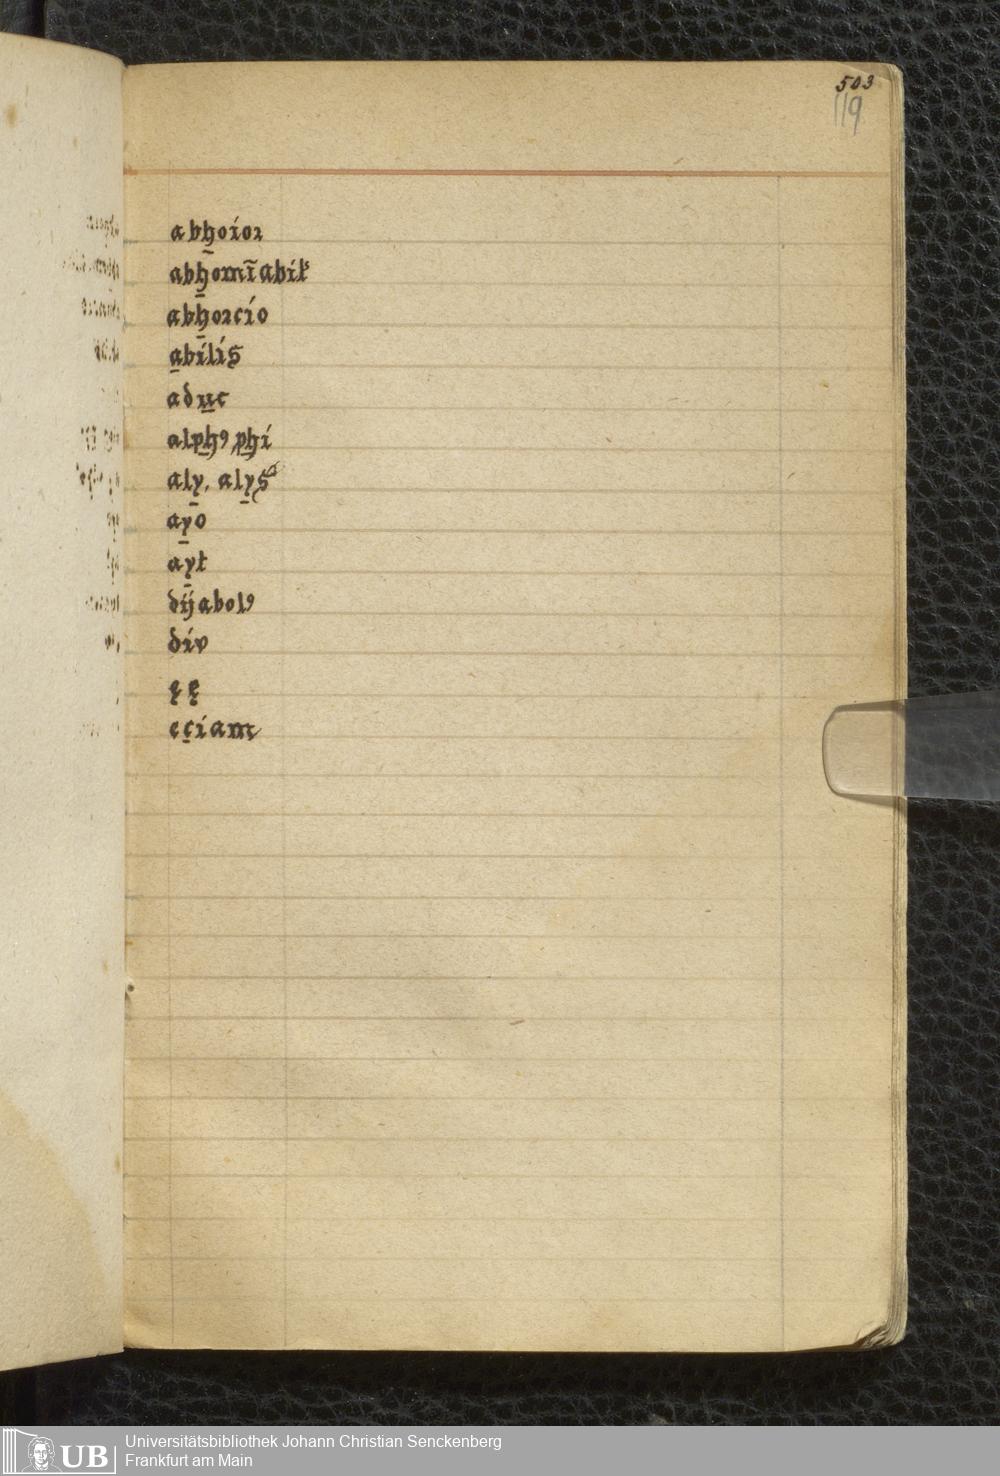 503
119
abhoior
abhomīabilꝭ
abhorcio
abilis
aduc
alphꝰ, phi
aly, alys
ayo
ayt
dijabolꝰ
div
ę ę
eciam
Universitätsbibliothek Johann Christian Senckenberg
Frankfurt am Main
UB